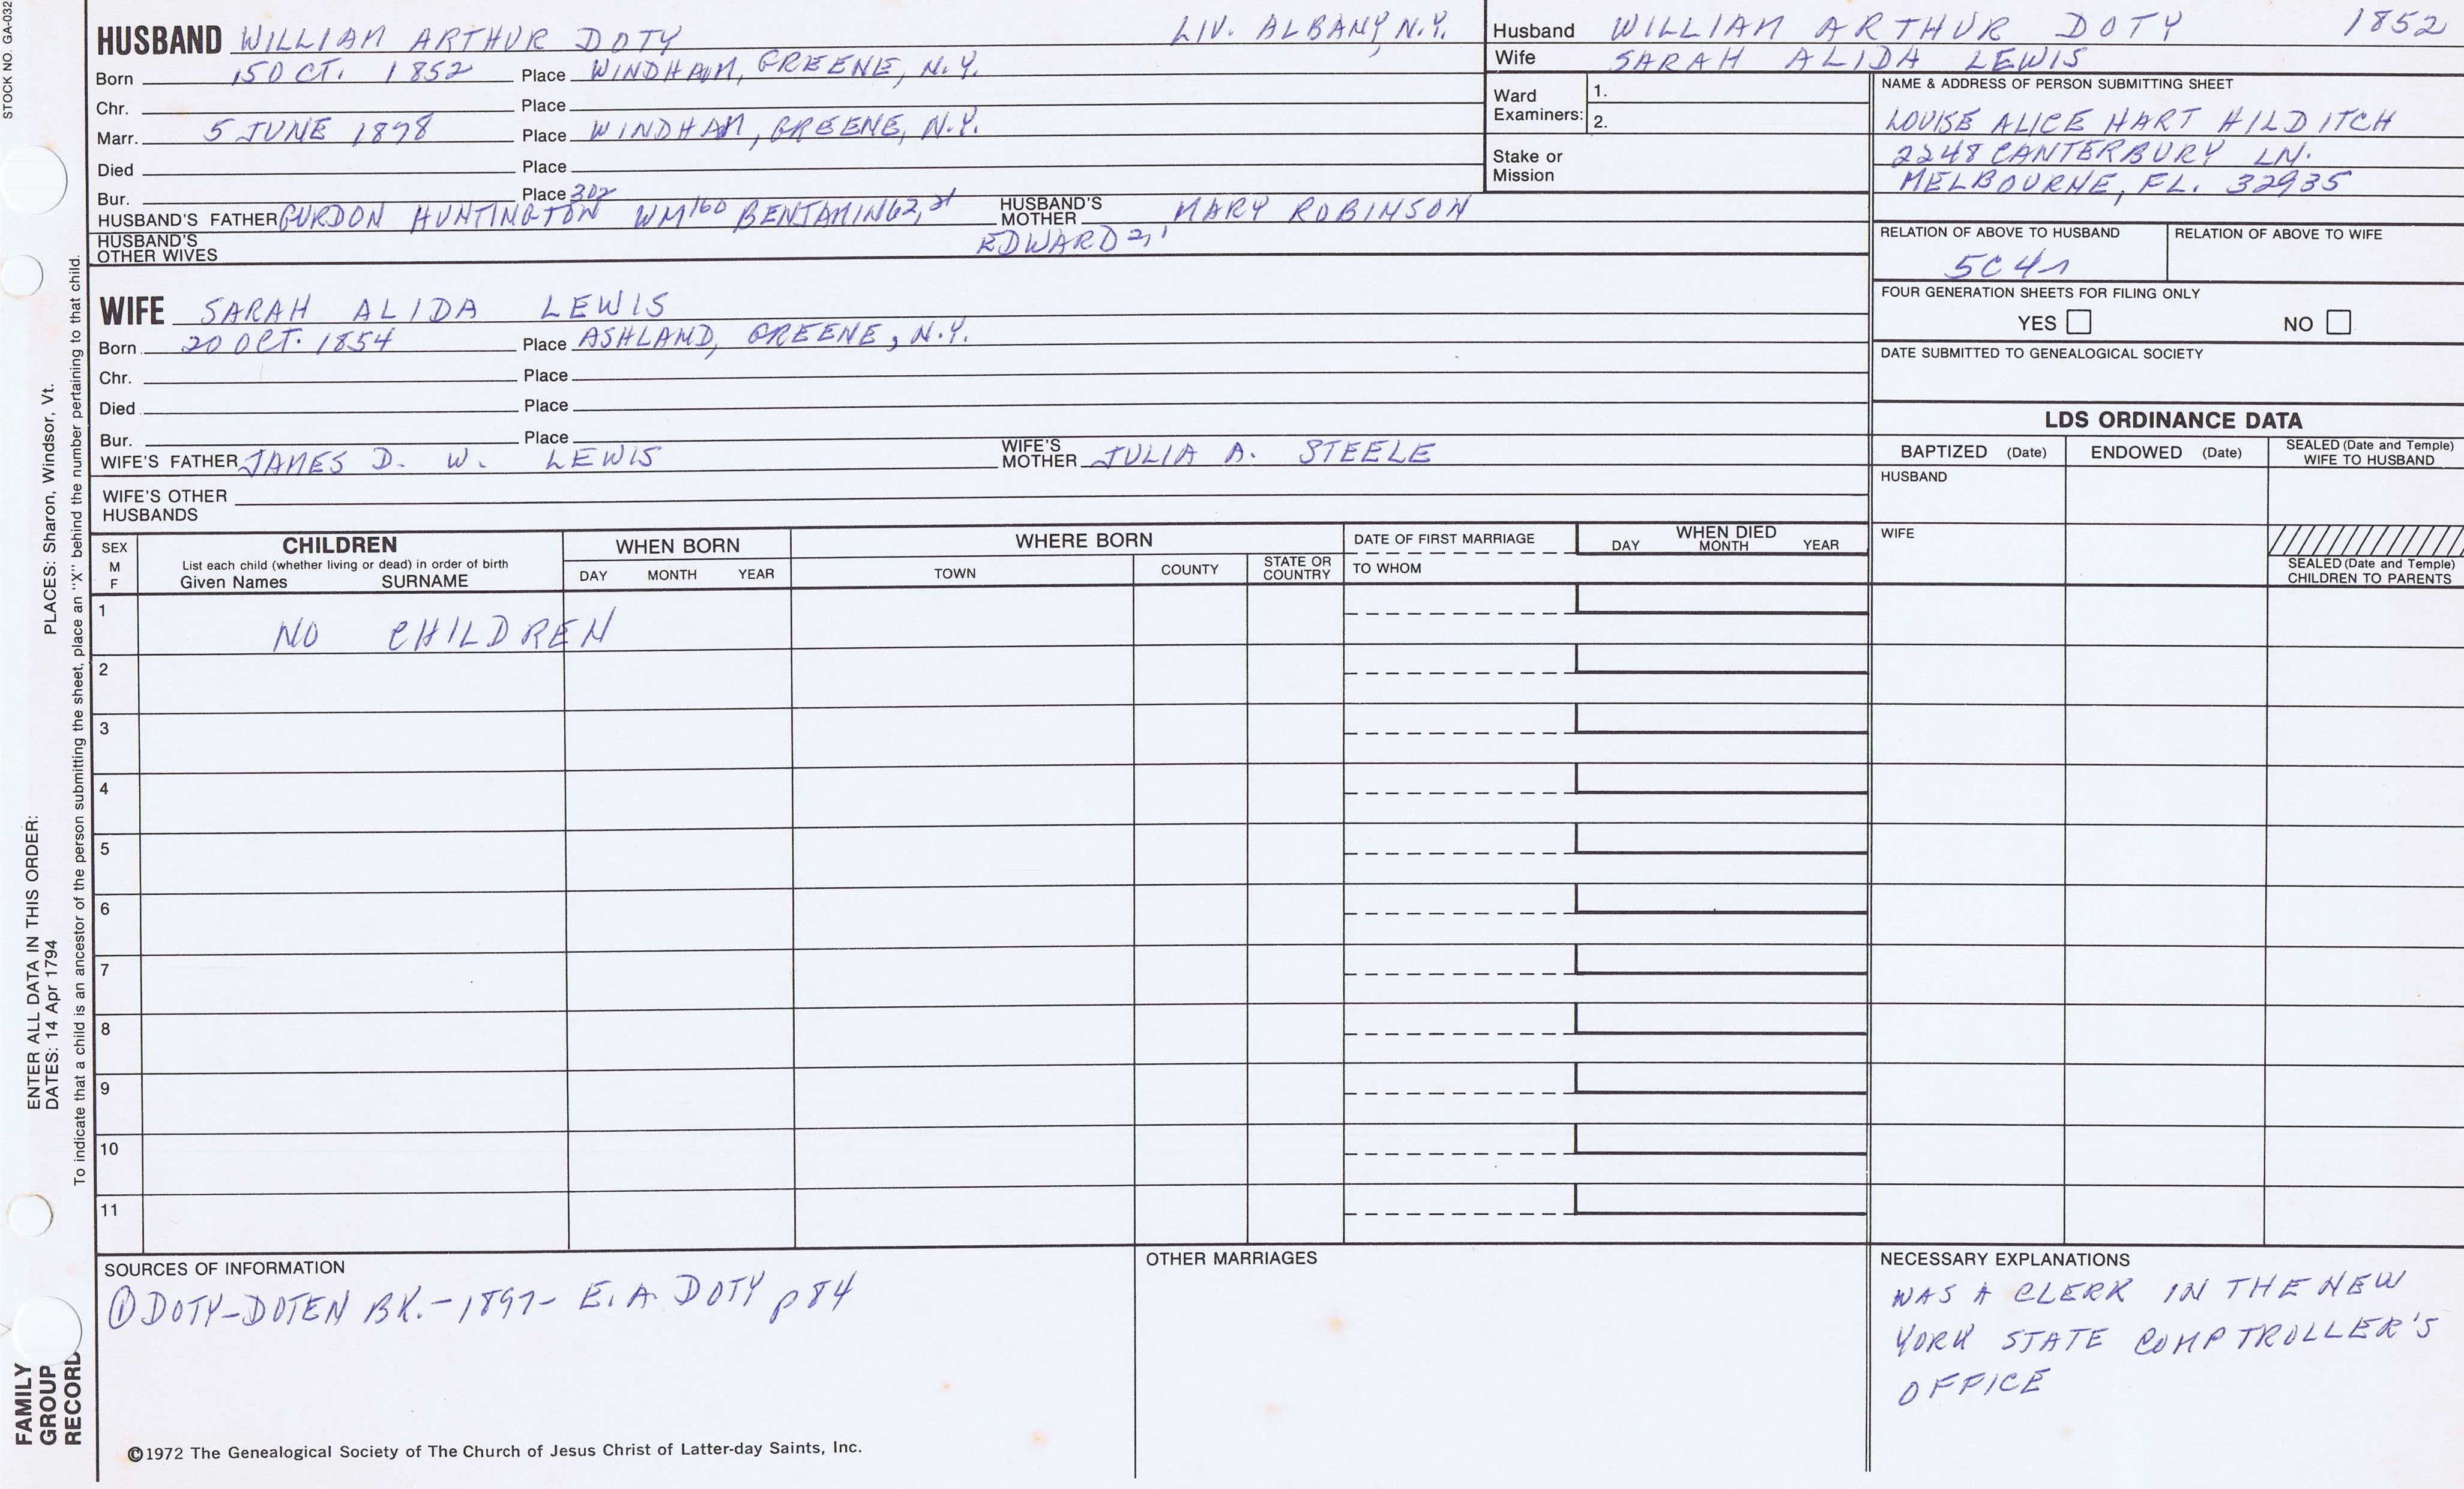 STOCK NO. GA-032
HUSBAND WILLIAM ARTHUR DOTY LIV. ALBANY, N.Y.
Born 15 OCT. 1852 Place WINDHAM, GREENE, N.Y.
Chr. Place
Marr. 5 JUNE 1878 Place WINDHAM, GREENE, N.Y.
Died Place
Bur. Place
HUSBAND'S FATHER GURDON HUNTINGTON 302 WM 160 BENJAMIN 62, 21 HUSBAND'S MOTHER MARY ROBINSON
HUSBAND'S OTHER WIVES EDWARD 2, 1
WIFE SARAH ALIDA LEWIS
Born 20 OCT. 1854 Place ASHLAND, GREENE, N.Y.
Chr. Place
Died Place
Bur. Place
WIFE'S FATHER JAMES D. W. LEWIS WIFE'S MOTHER JULIA A. STEELE
WIFE'S OTHER HUSBANDS
Husband WILLIAM ARTHUR DOTY 1852
Wife SARAH ALIDA LEWIS
Ward Examiners: 1.
2.
Stake or Mission
NAME & ADDRESS OF PERSON SUBMITTING SHEET
LOUISE ALICE HART HILDITCH
2248 CANTERBURY LN.
MELBOURNE, FL. 32935
RELATION OF ABOVE TO HUSBAND RELATION OF ABOVE TO WIFE
5C4r
FOUR GENERATION SHEETS FOR FILING ONLY
YES NO
DATE SUBMITTED TO GENEALOGICAL SOCIETY
LDS ORDINANCE DATA
BAPTIZED (Date) ENDOWED (Date) SEALED (Date and Temple) WIFE TO HUSBAND
HUSBAND
WIFE
SEALED (Date and Temple) CHILDREN TO PARENTS
SEX M F
CHILDREN
List each child (whether living or dead) in order of birth
Given Names SURNAME
WHEN BORN
DAY MONTH YEAR
WHERE BORN
TOWN COUNTY STATE OR COUNTRY
DATE OF FIRST MARRIAGE
TO WHOM
WHEN DIED
DAY MONTH YEAR
1 NO CHILDREN
2
3
4
5
6
7
8
9
10
11
SOURCES OF INFORMATION
① DOTY-DOTEN BK.-1897- E.A. DOTY p 84
OTHER MARRIAGES
NECESSARY EXPLANATIONS
WAS A CLERK IN THE NEW
YORK STATE COMPTROLLER'S
OFFICE
©1972 The Genealogical Society of The Church of Jesus Christ of Latter-day Saints, Inc.
FAMILY
GROUP
RECORD
ENTER ALL DATA IN THIS ORDER:
DATES: 14 Apr 1794 PLACES: Sharon, Windsor, Vt.
To indicate that a child is an ancestor of the person submitting the sheet, place an "X" behind the number pertaining to that child.